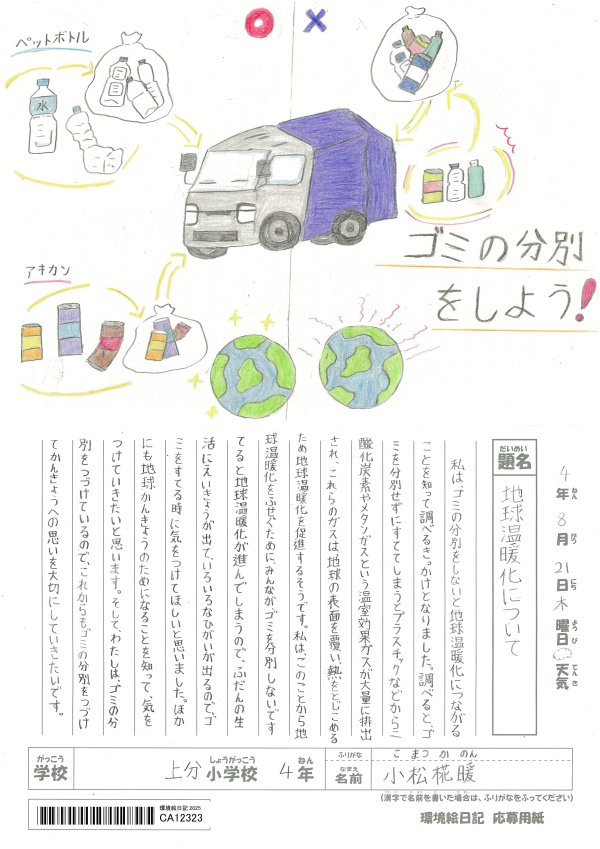 ○ ×
ペットボトル
水
アキカン
ゴミの分別
をしよう!
4年ねん 8月がつ 21日にち 木曜日ようび 天気てんき
題名だいめい
地球温暖化について
私は、ゴミの分別をしないと地球温暖化につながる
ことを知って調べるきっかけとなりました。調べると、ゴ
ミを分別せずにすててしまうとプラスチックなどから二
酸化炭素やメタンガスという温室効果ガスが大量に排出
され、これらのガスは、地球の表面を覆い、熱をとじこめる
ため地球温暖化を促進するそうです。私は、このことから地
球温暖化をふせぐために、みんながゴミを分別しないです
てると地球温暖化が進んでしまうので、ふだんの生
活にえいきょうが出て、いろいろなひがいが出るのでゴ
ミをすてる時に気をつけてほしいと思いました。ほか
にも地球かんきょうのためになることを知って、気を
つけていきたいと思います。そして、わたしは、ゴミの分
別をつづけているので、これからもゴミの分別をつづけ
てかんきょうへの思いを大切にしていきたいです。
学校がっこう 上分 小学校しょうがっこう 4年ねん
ふりがな こまつ かのん
名前なまえ 小松椛暖
(漢字で名前を書いた場合は、ふりがなをふってください)
環境絵日記 2025
CA12323
環境絵日記 応募用紙